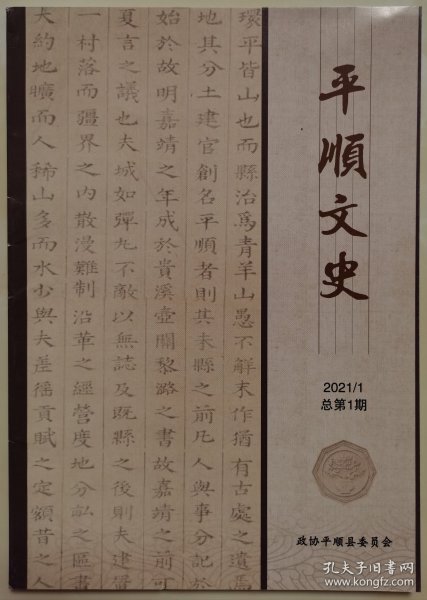 平順文史
2021/1
总第1期
政协平顺县委员会
環平皆山也而縣治爲青羊山愚不解未作猶有古處之遺焉
地其分土建官創名平順者則其未縣之前凡人與事分記於
始於故明嘉靖之年成於貴溪壺關黎潞之書故嘉靖之前可
夏言之議也夫城如彈丸不敵以無誌及既縣之後則夫建置
一村落而疆界之内散漫難制沿革之經營度地分畝之區畫
大約地曠而人稀山多而水少與夫差徭貢賦之定額昔之人
孔夫子旧书网
www.kongfz.com